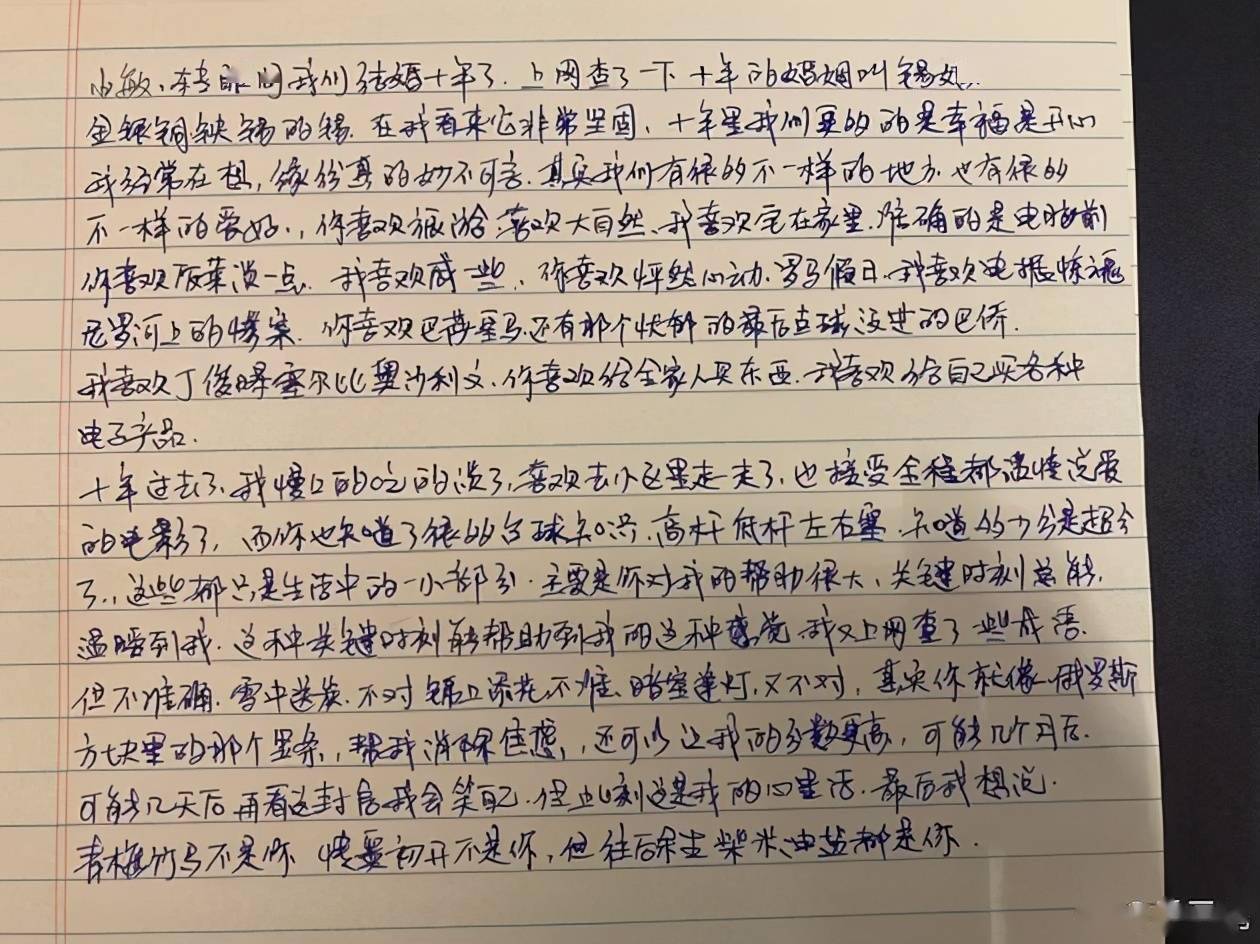 小敏、转眼间我们结婚十年了.上网查了一下十年的婚姻叫锡婚.
金银铜铁锡的锡.在我看来它非常坚固、十年里我们更多的是幸福是开心
我经常在想,缘分真的妙不可言.其实我们有很多不一样的地方.也有很多
不一样的爱好.,你喜欢旅游.喜欢大自然、我喜欢宅在家里.准确的是电脑前
你喜欢饭菜淡一点.我喜欢咸一些、你喜欢怦然心动.罗马假日.我喜欢电锯惊魂
尼罗河上的惨案.你喜欢巴蒂皇马.还有那个忧郁的最后点球没进的巴乔.
我喜欢丁俊晖塞尔比奥沙利文.你喜欢给全家人买东西.我喜欢给自己买各种
电子产品.
十年过去了.我慢慢的吃的淡了,喜欢去小区里走一走了.也接受全程都温情说爱
的电影了,而你也知道了很多台球知识.高杆低杆左右塞.知道多少分是超分
了.,这些都只是生活中的一小部分.主要是你对我的帮助很大、关键时刻总能
温暖到我.这种关键时刻能帮助到我的这种感觉.我又上网查了一些成语.
但不准确.雪中送炭.不对锦上添花不准.暗室逢灯,又不对,其实你就像俄罗斯
方块里的那个竖条,帮我消除,还可以让我的分数更高,可能几个月后.
可能几天后再看这封信我会笑自己.但此刻这是我的心里话.最后我想说.
青梅竹马不是你 情窦初开不是你,但往后余生柴米油盐都是你.